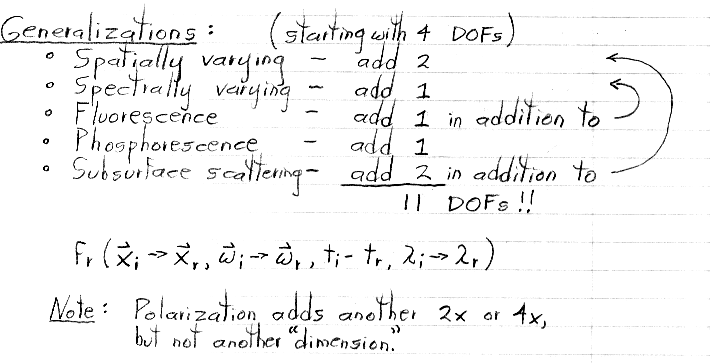 Generalizations: (starting with 4 DOFs)
• Spatially varying - add 2
• Spectrally varying - add 1
• Fluorescence - add 1 in addition to
• Phosphorescence - add 1
• Subsurface scattering - add 2 in addition to
11 DOFs!!
Fr (x⃗i → x⃗r, ω⃗i → ω⃗r, ti - tr, λi → λr)
Note: Polarization adds another 2x or 4x,
but not another "dimension."